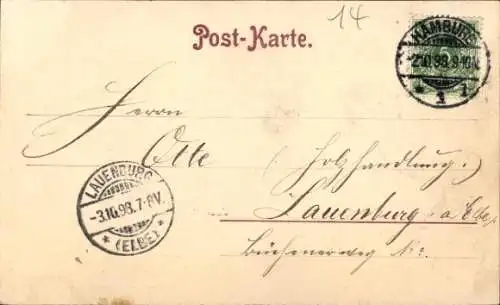 14
Post-Karte.
HAMBURG
-2.10.98.9-10V.
* 1 *
Herrn
Otte (Holzhandlung)
LAUENBURG
-3.10.98.7-8V.
* (ELBE) *
in Lauenburg a/Elbe,
Büchenerweg No.